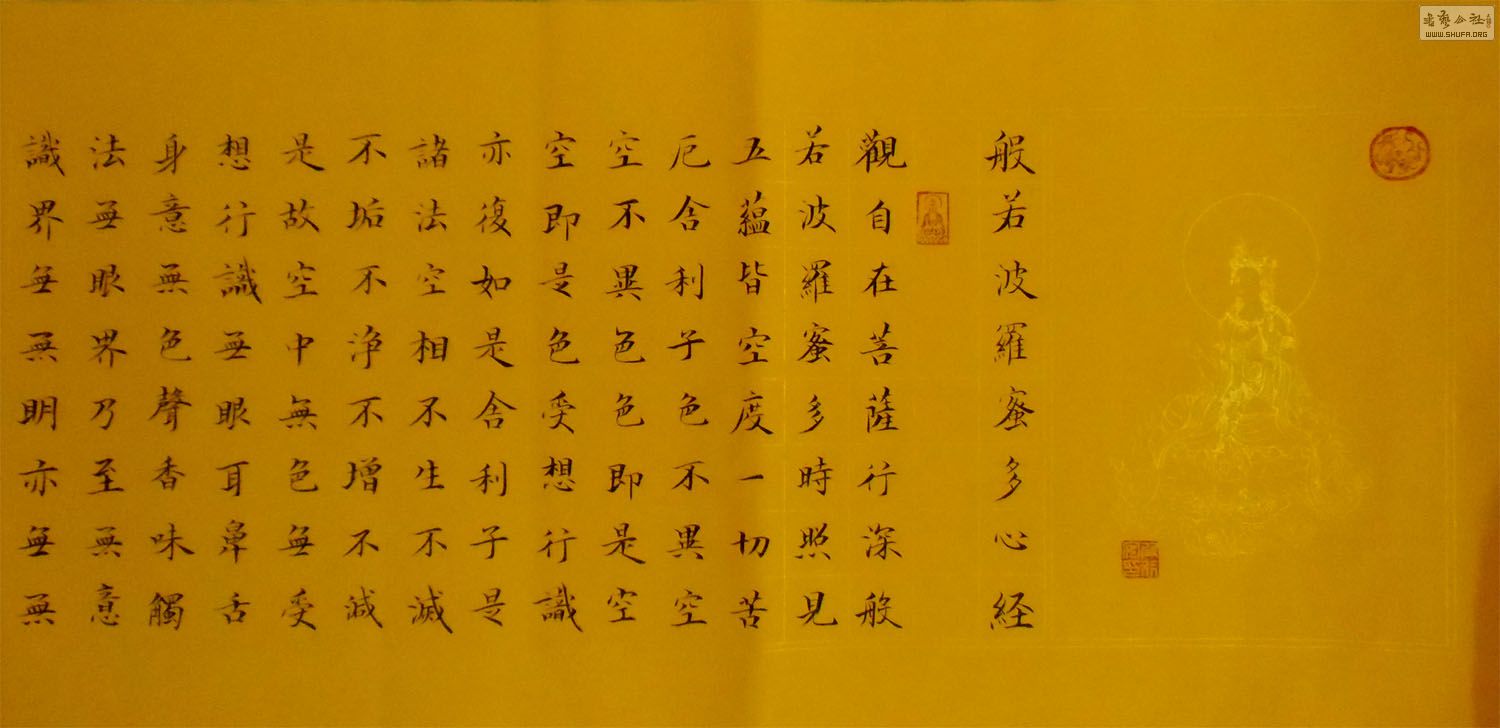 般若波羅蜜多心経
觀自在菩薩行深般
若波羅蜜多時照見
五蘊皆空度一切苦
厄舍利子色不異空
空不異色色即是空
空即是色受想行識
亦復如是舍利子是
諸法空相不生不滅
不垢不浄不增不減
是故空中無色無受
想行識無眼耳鼻舌
身意無色聲香味觸
法無眼界乃至無意
識界無無明亦無無
書藝公社
WWW.SHUFA.ORG